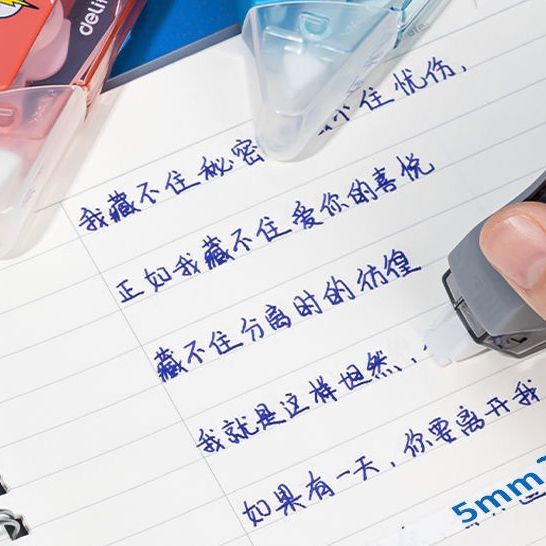 deli
我藏不住秘密 不住忧伤,
正如我藏不住爱你的喜悦
藏不住分离时的彷徨
我就是这样坦然,
如果有一天,你要离开我
5mm